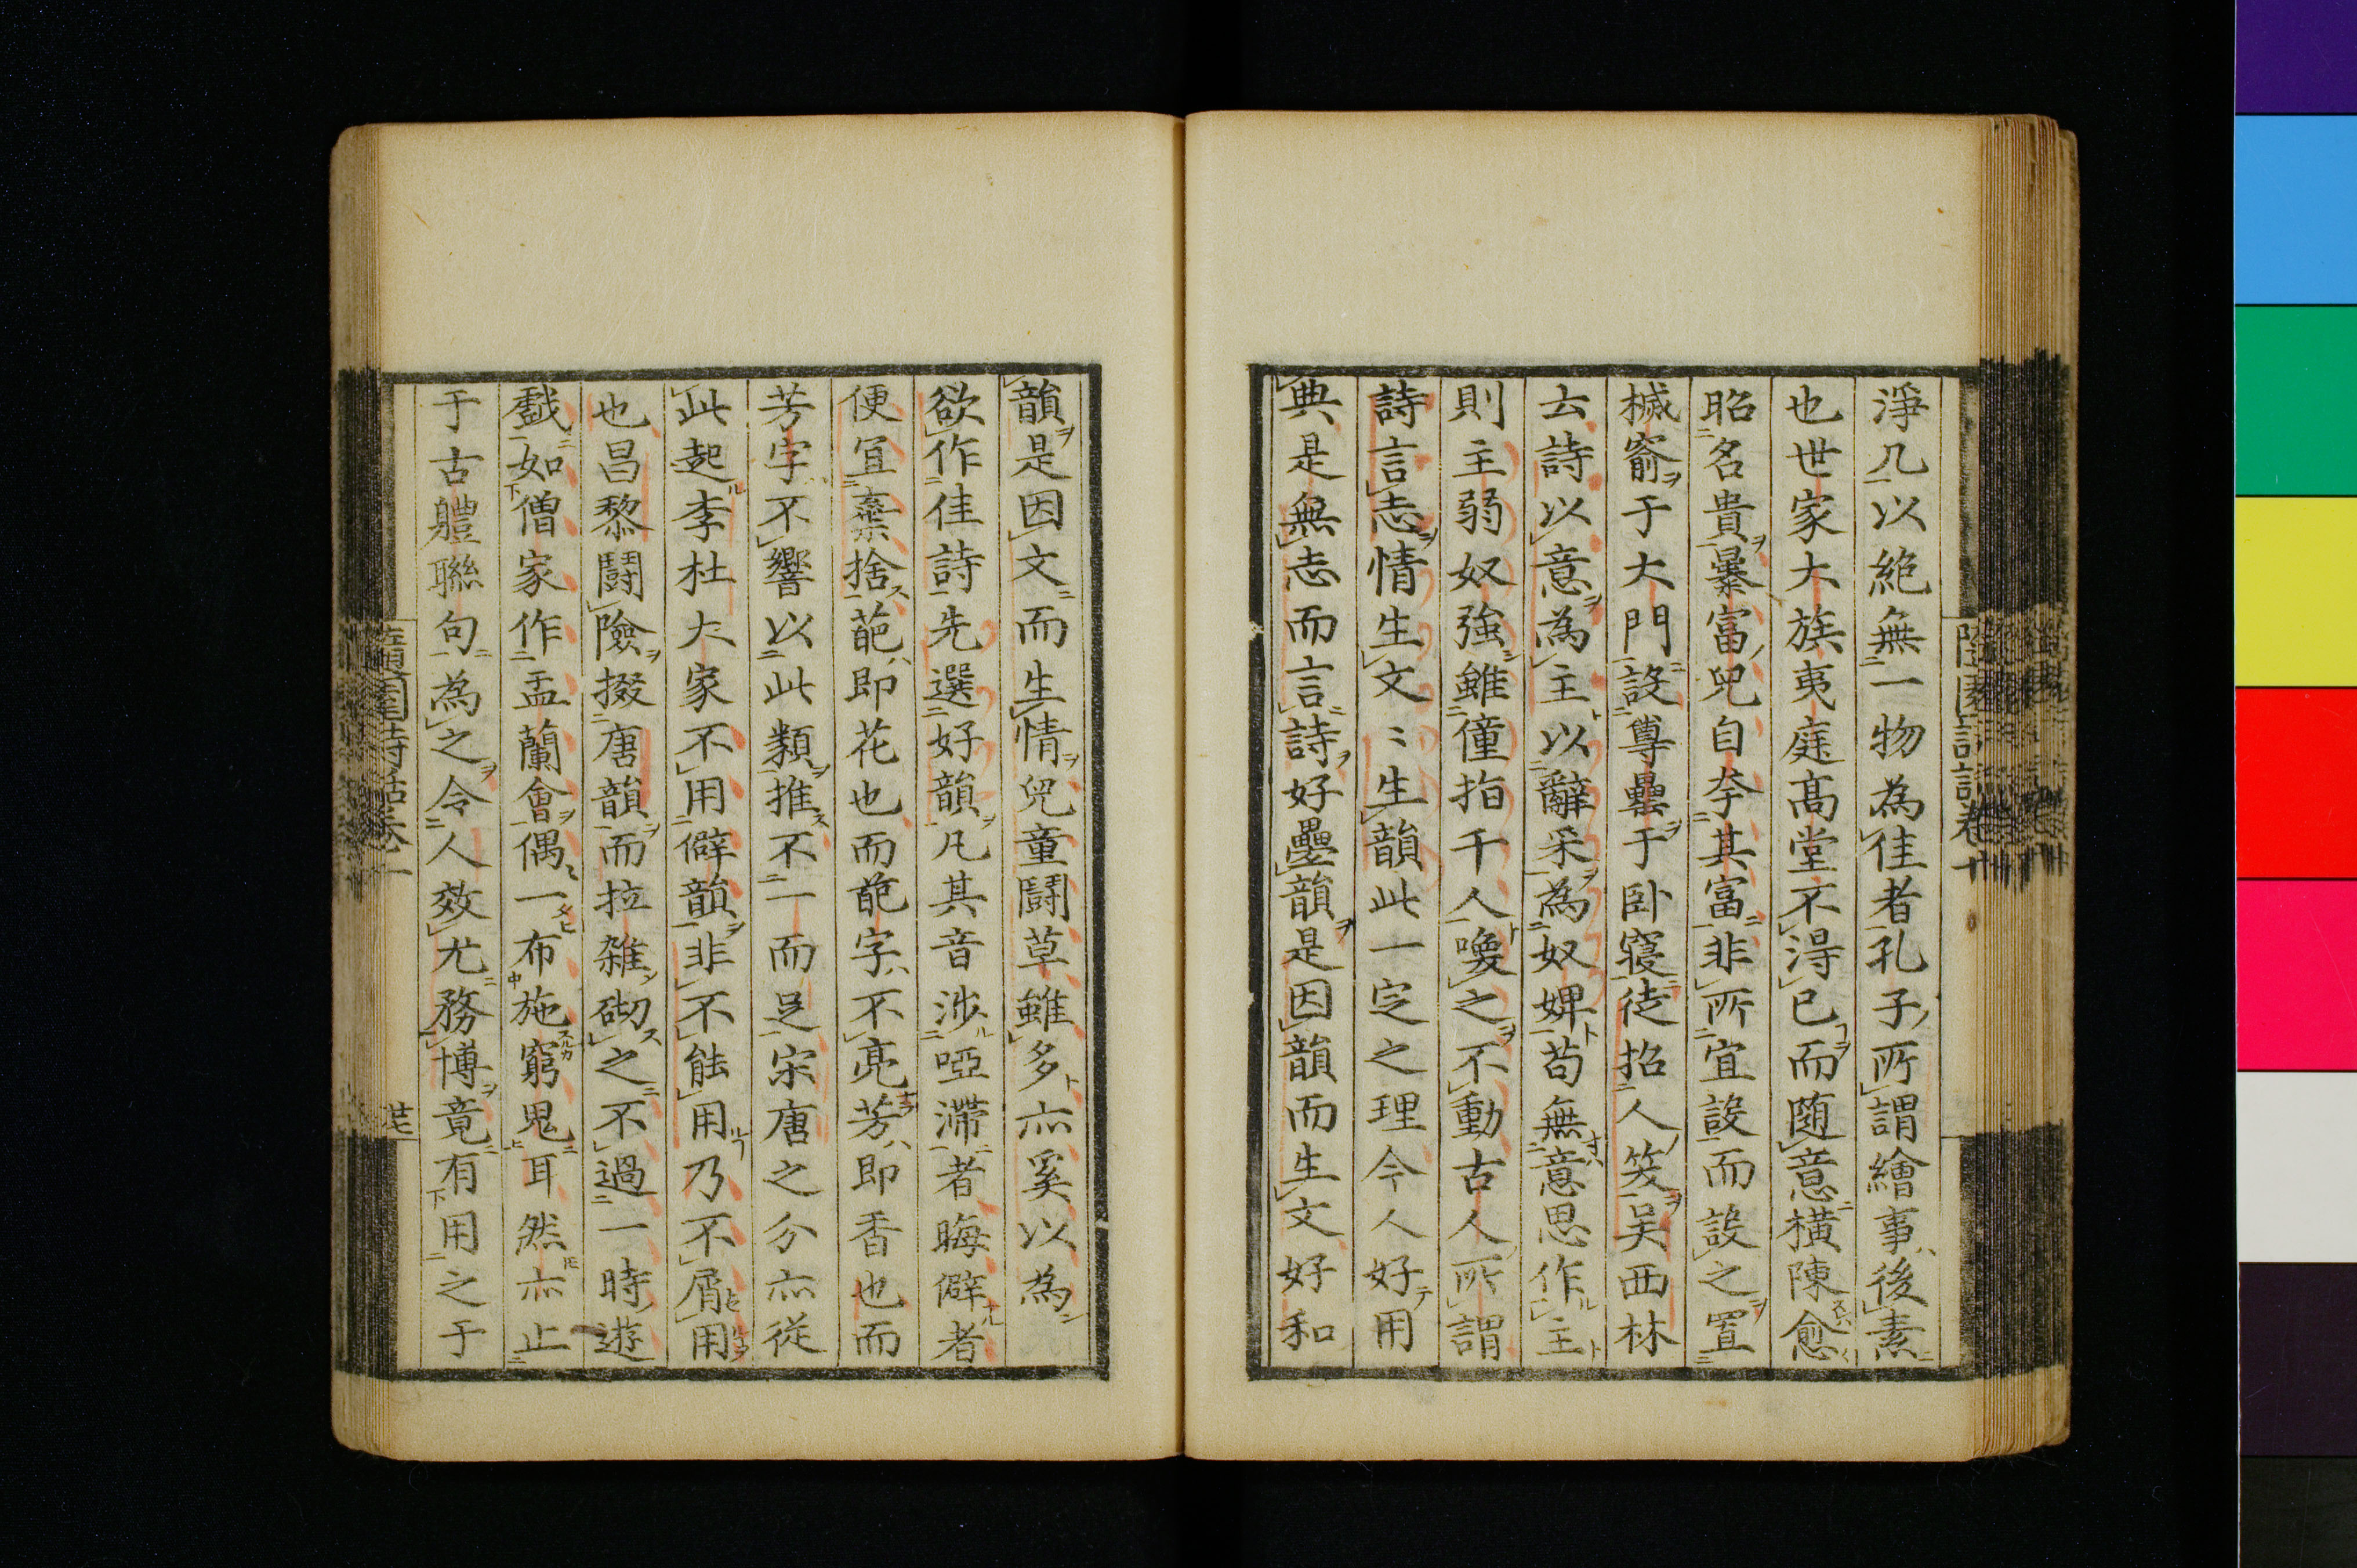 淨几以絶無一物為佳者孔子所謂繪事後素
也世家大族夷庭髙堂不得已而随意横陳愈
昭名貴暴富兒自夸其富非所宜設而設之置
槭窬于大門設尊罍于卧寝徒招人笑吴西林
云詩以意為主以辭采為奴婢苟無意思作主
則主弱奴強雖僮指千人喚之不動古人所謂
詩言志情生文〻生韻此一定之理今人好用
典是無志而言詩好疊韻是因韻而生文好和
韻是因文而生情兒童鬪草雖多亦奚以為
欲作佳詩先選好韻凡其音涉啞滞者晦僻者
便宜棄捨葩即花也而葩字不亮芳即香也而
芳字不響以此類推不一而足宋唐之分亦從
此起李杜大家不用僻韻非不能用乃不屑用
也昌黎鬪險掇唐韻而拉雜砌之不過一時遊
戲如僧家作盂蘭會偶一布施窮鬼耳然亦止
于古體聯句為之今人效尤務博竟有用之于